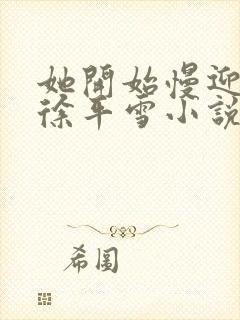 她開始慢迎
徐平雪小說
希圖